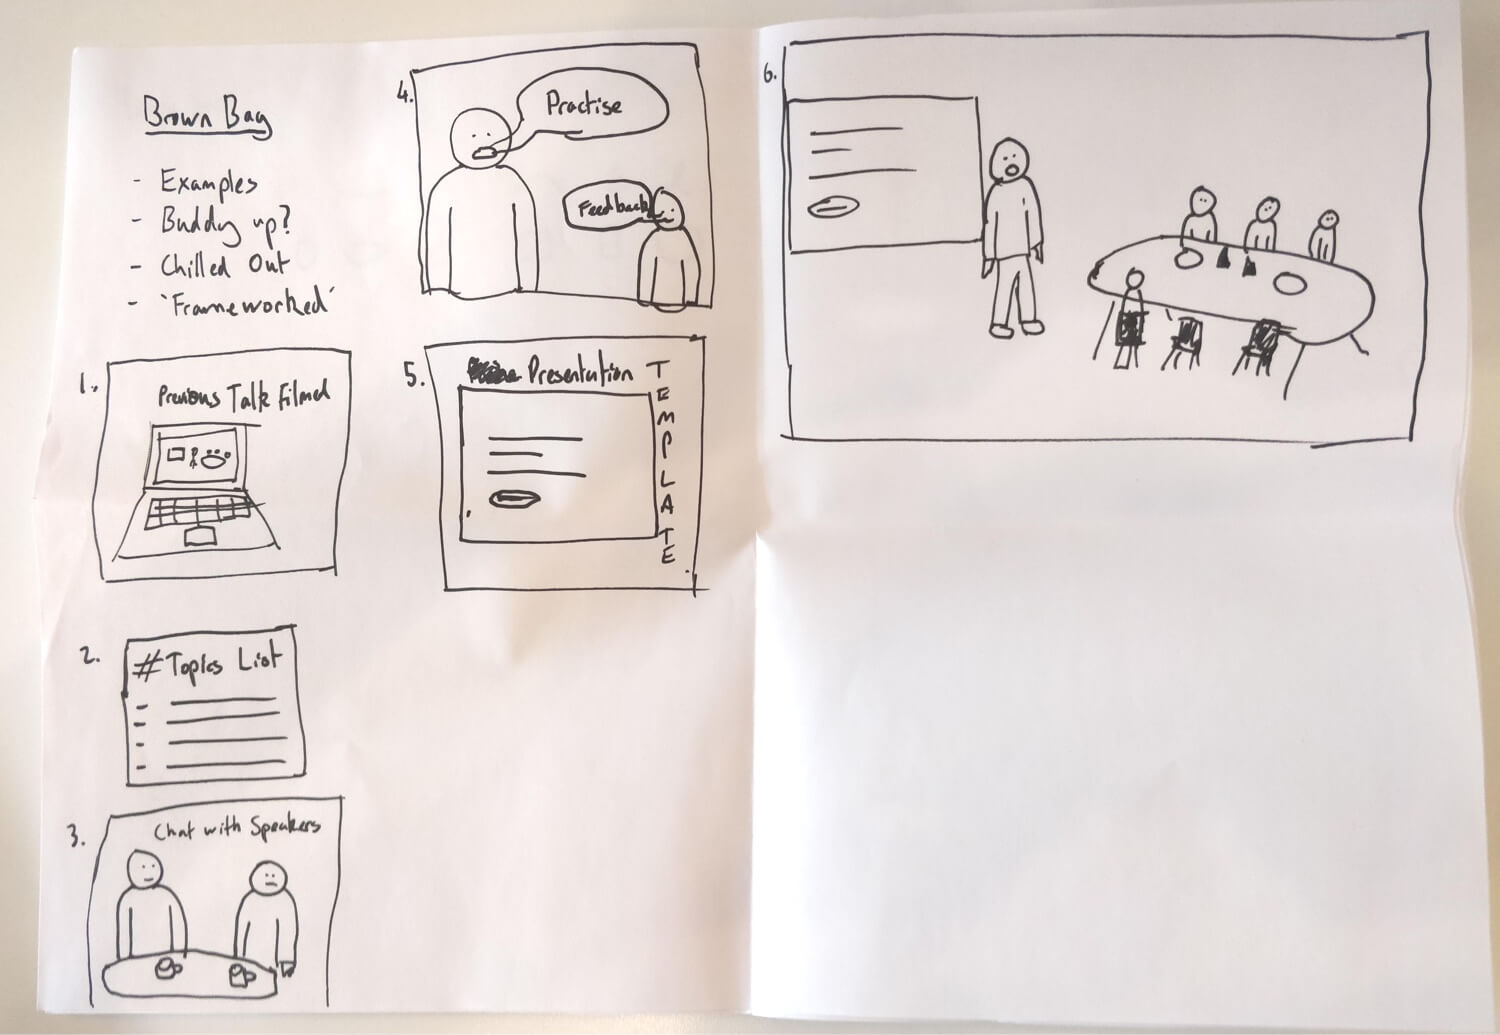 Brown Bag
- Examples
- Buddy up?
- Chilled Out
- 'Frameworked'
1.
Previous Talk Filmed
2.
# Topics List
3.
Chat with Speakers
4.
Practise
Feedback
5.
Presentation
TEMPLATE
6.